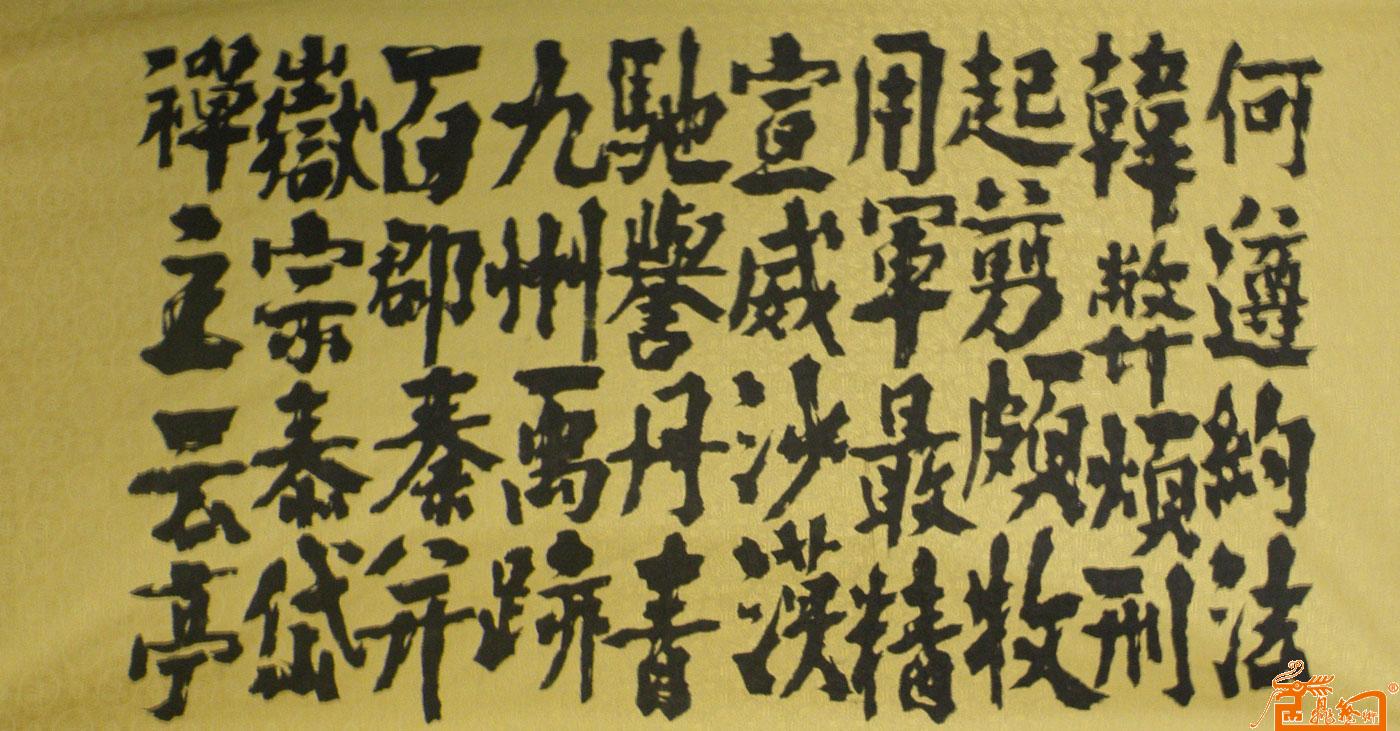 何遵約法
韓弊煩刑
起剪頗牧
用軍最精
宣威沙漠
馳譽丹青
九州禹跡
百郡秦并
嶽宗泰岱
禪主云亭